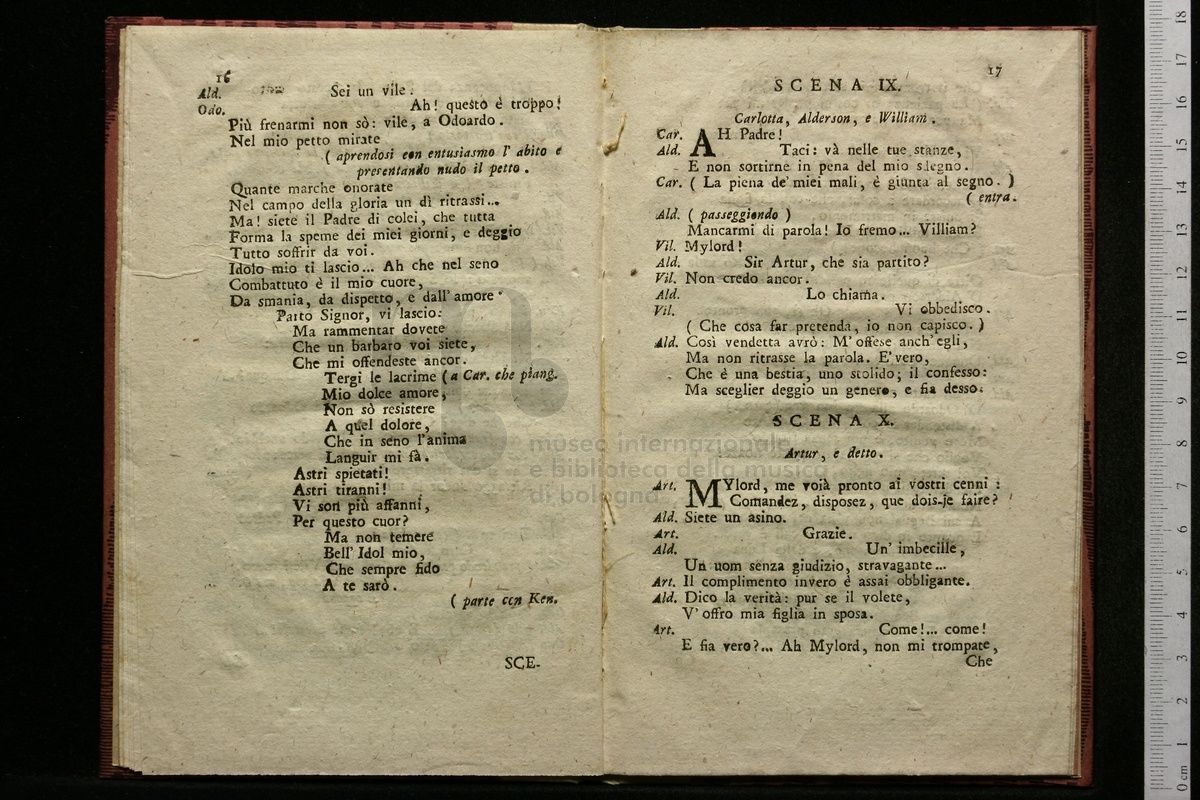 16
Ald. Sei un vile.
Odo. Ah! questo è troppo!
Più frenarmi non sò: vile, a Odoardo.
Nel mio petto mirate
( aprendosi con entusiasmo l' abito e
presentando nudo il petto.
Quante marche onorate
Nel campo della gloria un dì ritrassi...
Ma! siete il Padre di colei, che tutta
Forma la speme dei miei giorni, e deggio
Tutto soffrir da voi.
Idolo mio ti lascio... Ah che nel seno
Combattuto è il mio cuore,
Da smania, da dispetto, e dall' amore
Parto Signor, vi lascio:
Ma rammentar dovete
Che un barbaro voi siete,
Che mi offendeste ancor.
Tergi le lacrime (a Car. che piang.
Mio dolce amore,
Non sò resistere
A quel dolore,
Che in seno l'anima
Languir mi fà.
Astri spietati!
Astri tiranni!
Vi son più affanni,
Per questo cuor?
Ma non temere
Bell' Idol mio,
Che sempre fido
A te sarò.
( parte con Ken.
SCE-
17
SCENA IX.
Carlotta, Alderson, e William.
Car. AH Padre!
Ald. Taci: và nelle tue stanze,
E non sortirne in pena del mio sdegno.
Car. ( La piena de' miei mali, è giunta al segno. )
( entra.
Ald. ( passeggiando )
Mancarmi di parola! Io fremo... Villiam?
Vil. Mylord!
Ald. Sir Artur, che sia partito?
Vil. Non credo ancor.
Ald. Lo chiama.
Vil. Vi obbedisco.
( Che cosa far pretenda, io non capisco. )
Ald. Così vendetta avrò: M' offese anch' egli,
Ma non ritrasse la parola. E' vero,
Che è una bestia, uno stolido; il confesso:
Ma sceglier deggio un genero, e fia desso.
SCENA X.
Artur, e detto.
Art. MYlord, me voià pronto ai vostri cenni:
Comandez, disposez, que dois-je faire?
Ald. Siete un asino.
Art. Grazie.
Ald. Un' imbecille,
Un uom senza giudizio, stravagante...
Art. Il complimento invero è assai obbligante.
Ald. Dico la verità: pur se il volete,
V' offro mia figlia in sposa.
Art. Come!... come!
E fia vero?... Ah Mylord, non mi trompate,
Che
museo internazionale
e biblioteca della musica
di bologna